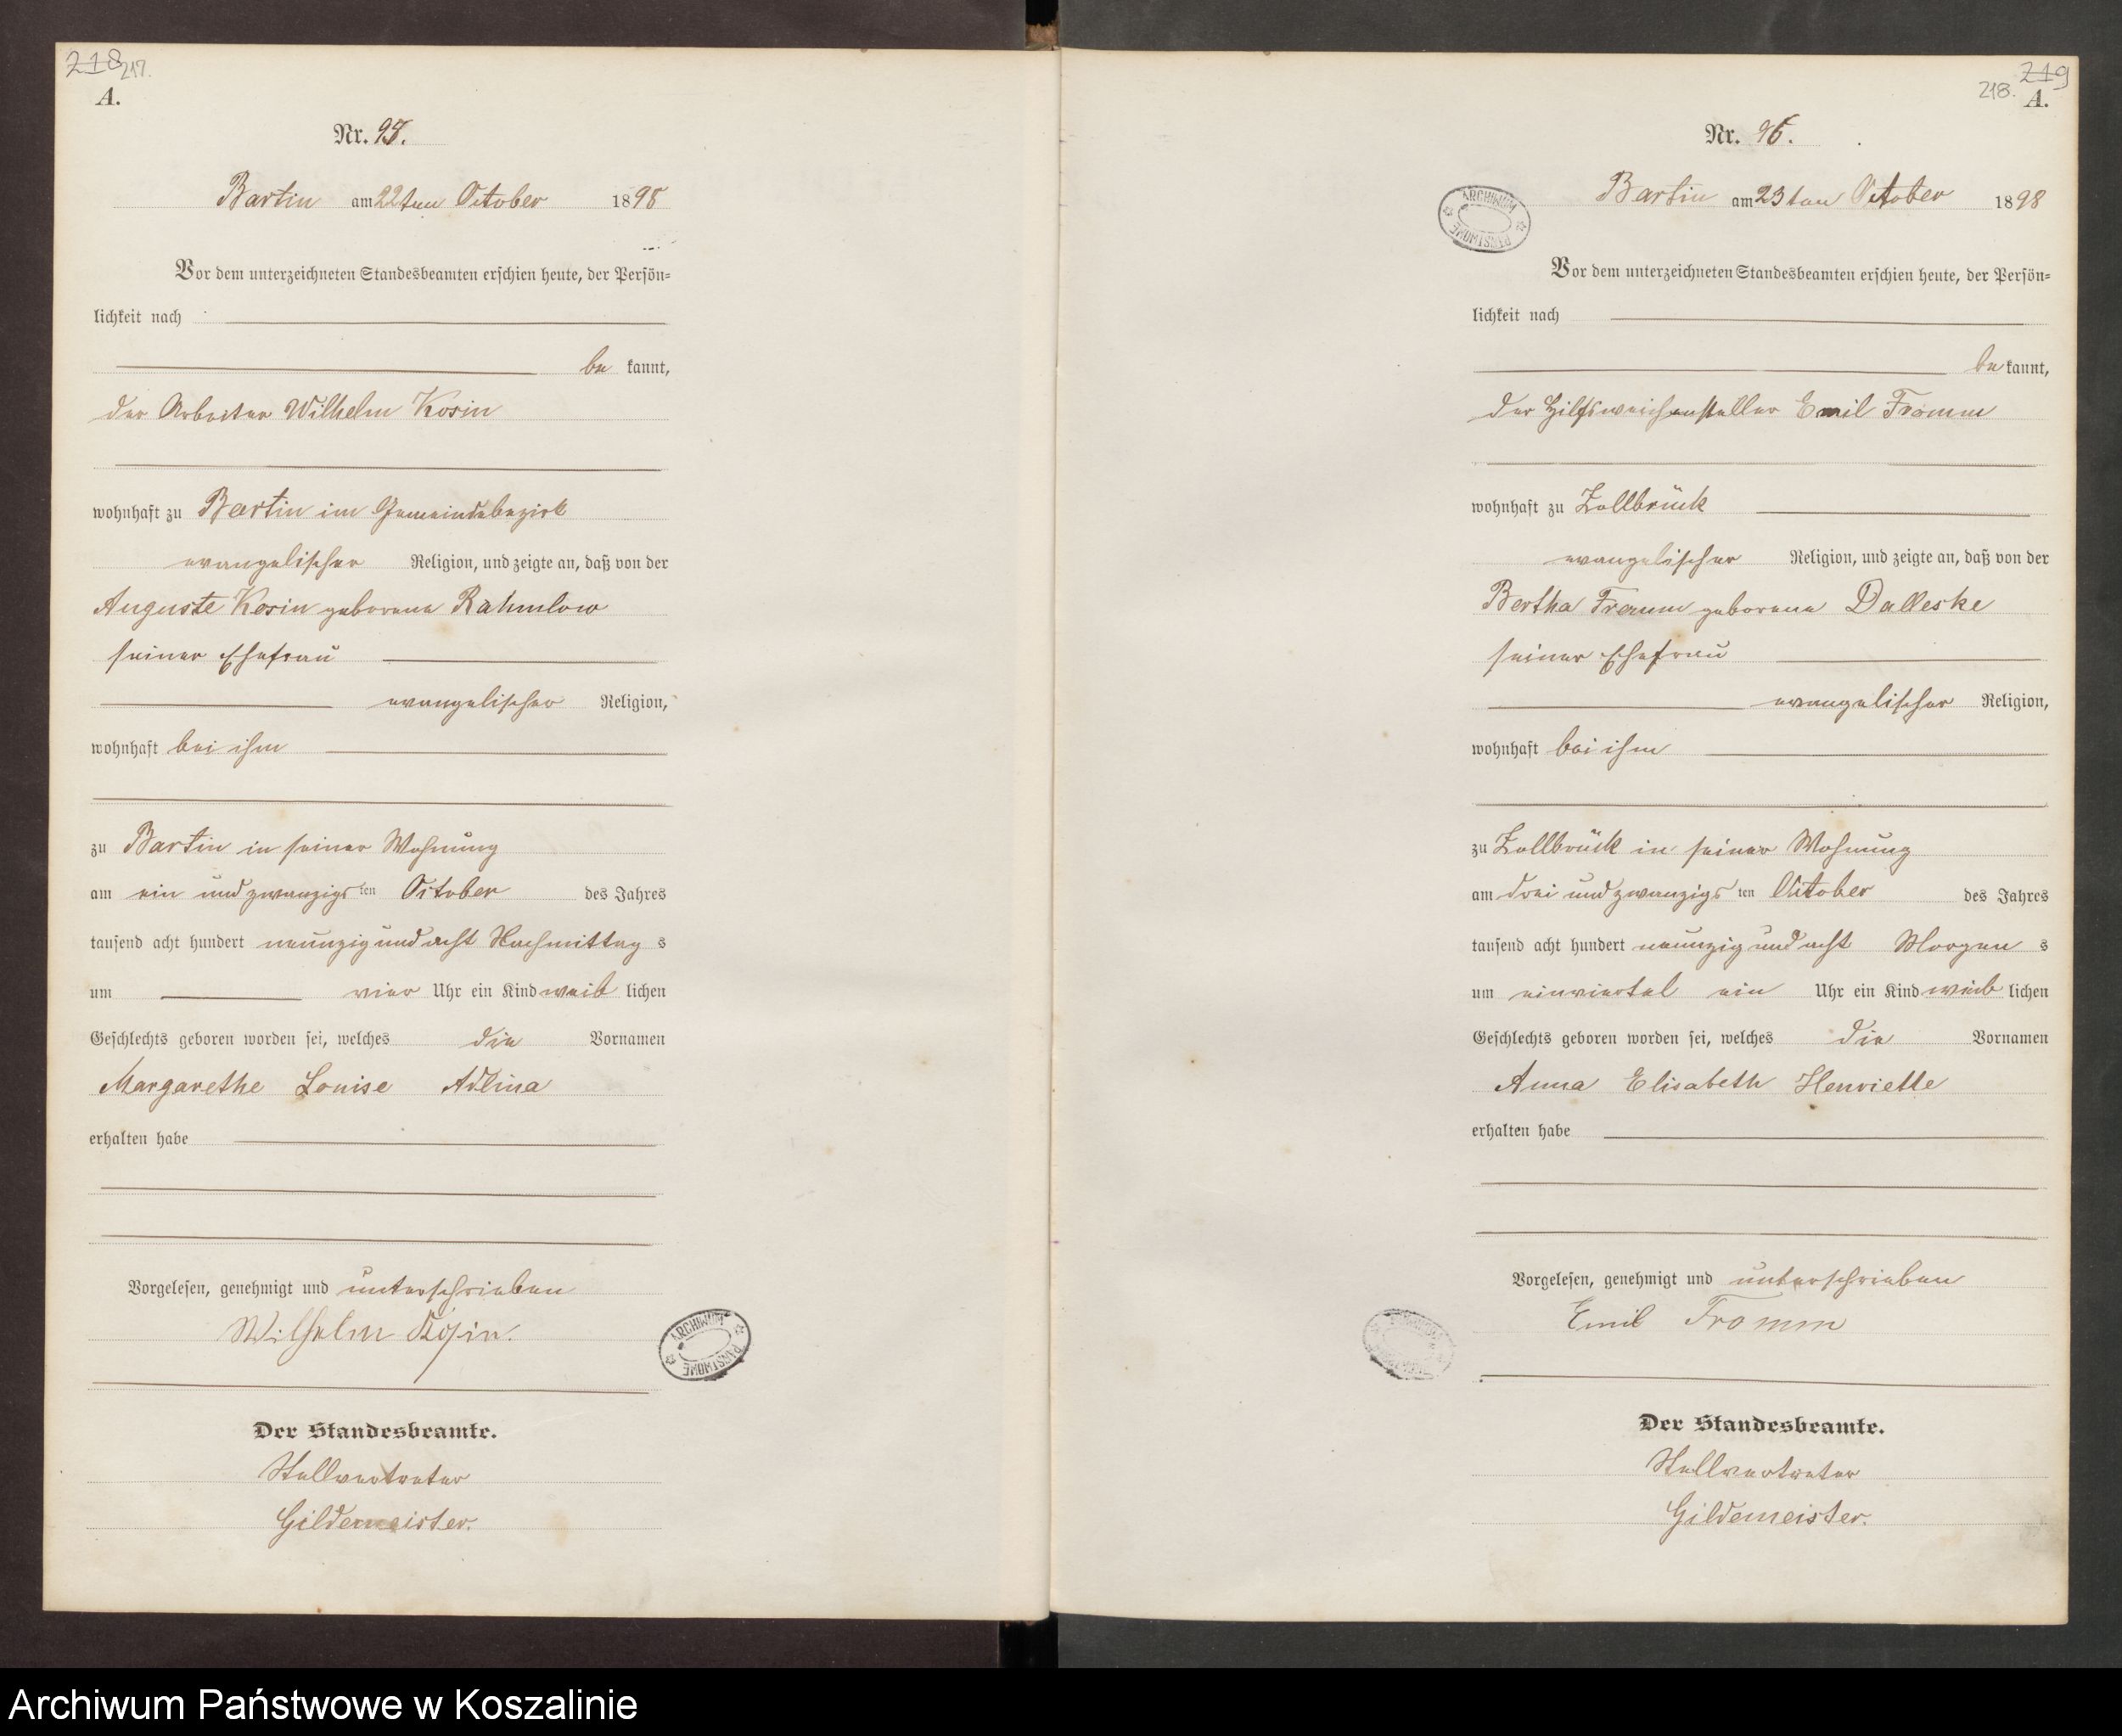 218 217.
A.
Nr. 95.
Bartin am 22ten October 1898
Vor dem unterzeichneten Standesbeamten erschien heute, der Persön=
lichkeit nach
be kannt,
der Arbeiter Wilhelm Kosin
wohnhaft zu Bartin im Gemeindebezirk
evangelischer Religion, und zeigte an, daß von der
Auguste Kosin geborene Rahmlow
seiner Ehefrau
evangelischer Religion,
wohnhaft bei ihm
zu Bartin in seiner Wohnung
am ein und zwanzigs ten October des Jahres
tausend acht hundert neunzig und acht Nachmittag s
um vier Uhr ein Kind weib lichen
Geschlechts geboren worden sei, welches die Vornamen
Margarethe Louise Adlina
erhalten habe
Vorgelesen, genehmigt und unterschrieben
Wilhelm Kosin.
ARCHIWUM PAŃSTWOWE
Der Standesbeamte.
Stellvertreter
Gildemeister.
219
218. A.
Nr. 96.
Bartin am 23ten October 1898
ARCHIWUM PAŃSTWOWE
Vor dem unterzeichneten Standesbeamten erschien heute, der Persön=
lichkeit nach
be kannt,
der Hilfsweichensteller Emil Fromm
wohnhaft zu Zollbrück
evangelischer Religion, und zeigte an, daß von der
Bertha Fromm geborene Dalleske
seiner Ehefrau
evangelischer Religion,
wohnhaft bei ihm
zu Zollbrück in seiner Wohnung
am drei und zwanzigs ten October des Jahres
tausend acht hundert neunzig und acht Morgen s
um einviertel ein Uhr ein Kind weib lichen
Geschlechts geboren worden sei, welches die Vornamen
Anna Elisabeth Henriette
erhalten habe
Vorgelesen, genehmigt und unterschrieben
Emil Fromm
Der Standesbeamte.
Stellvertreter
Gildemeister.
Archiwum Państwowe w Koszalinie